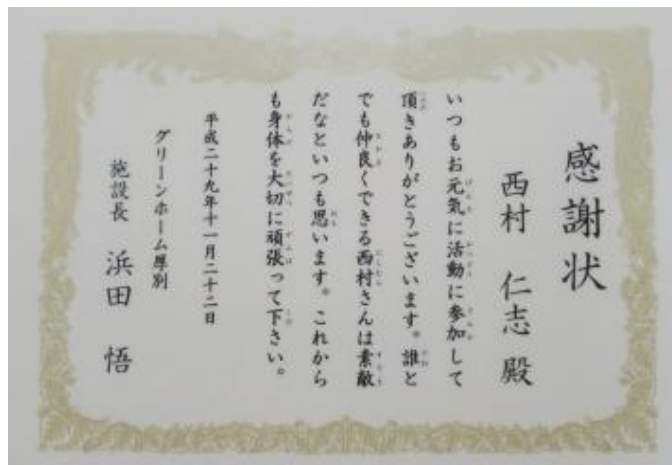 感謝状
西村 仁志 殿
いつもお元気に活動に参加して
頂きありがとうございます。誰と
でも仲良くできる西村さんは素敵
だなといつも思います。これから
も身体を大切に頑張って下さい。
平成二十九年十一月二十二日
グリーンホーム厚別
施設長 浜田 悟